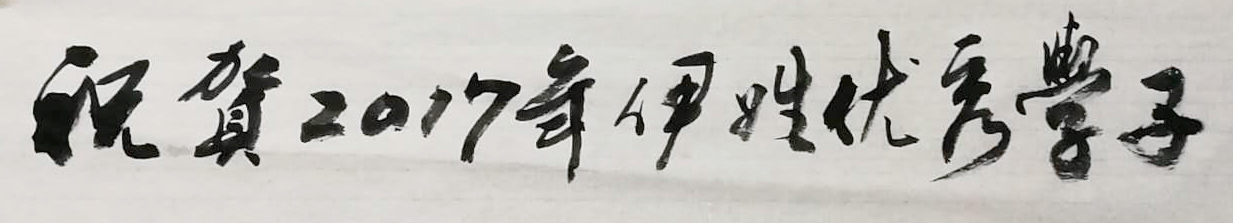 祝賀2017年伊姓优秀學子